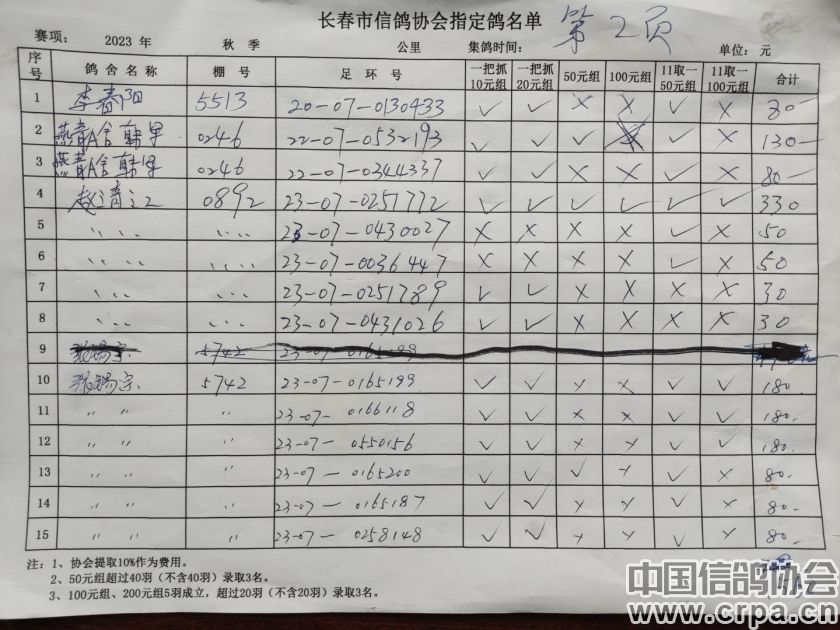 长春市信鸽协会指定鸽名单 第2页
赛项: 2023 年 秋 季 公里 集鸽时间: 单位: 元
序号 鸽 舍 名 称 棚 号 足 环 号 一把抓10元组 一把抓20元组 50元组 100元组 11取一50元组 11取一100元组 合计
1 李春阳 5513 20-07-0130433 ✓ ✓ × × ✓ × 80-
2 燕青A舍韩军 0246 22-07-0532193 ✓ ✓ ✓ × ✓ × 130-
3 燕青A舍韩军 0246 22-07-0344337 ✓ ✓ × × ✓ × 80-
4 0892 23-07-0251772 ✓ ✓ ✓ ✓ ✓ ✓ 330
5 〃 〃 〃 〃 23-07-0430027 × × × × ✓ × 50
6 〃 〃 〃 〃 23-07-0036447 × × × × ✓ × 50
7 〃 〃 〃 〃 23-07-0251789 ✓ ✓ × × × × 30
8 〃 〃 〃 〃 23-07-0431026 ✓ ✓ × × × × 30
9 张锡宗 5742 23-07-0165199
10 张锡宗 5742 23-07-0165199 ✓ ✓ × × ✓ ✓ 180-
11 〃 〃 〃 23-07-0166118 ✓ ✓ × × ✓ ✓ 180-
12 〃 〃 〃 23-07-0550156 ✓ ✓ × × ✓ ✓ 180-
13 〃 〃 〃 23-07-0165200 ✓ ✓ ✓ × ✓ × 80-
14 〃 〃 〃 23-07-0165187 ✓ ✓ × × ✓ × 80-
15 〃 〃 〃 23-07-0258148 ✓ ✓ × × ✓ × 80-
注: 1、协会提取10%作为费用。
2、50元组超过40羽(不含40羽)录取3名。
3、100元组、200元组5羽成立,超过20羽(不含20羽)录取3名。
中国信鸽协会
www.crpa.cn